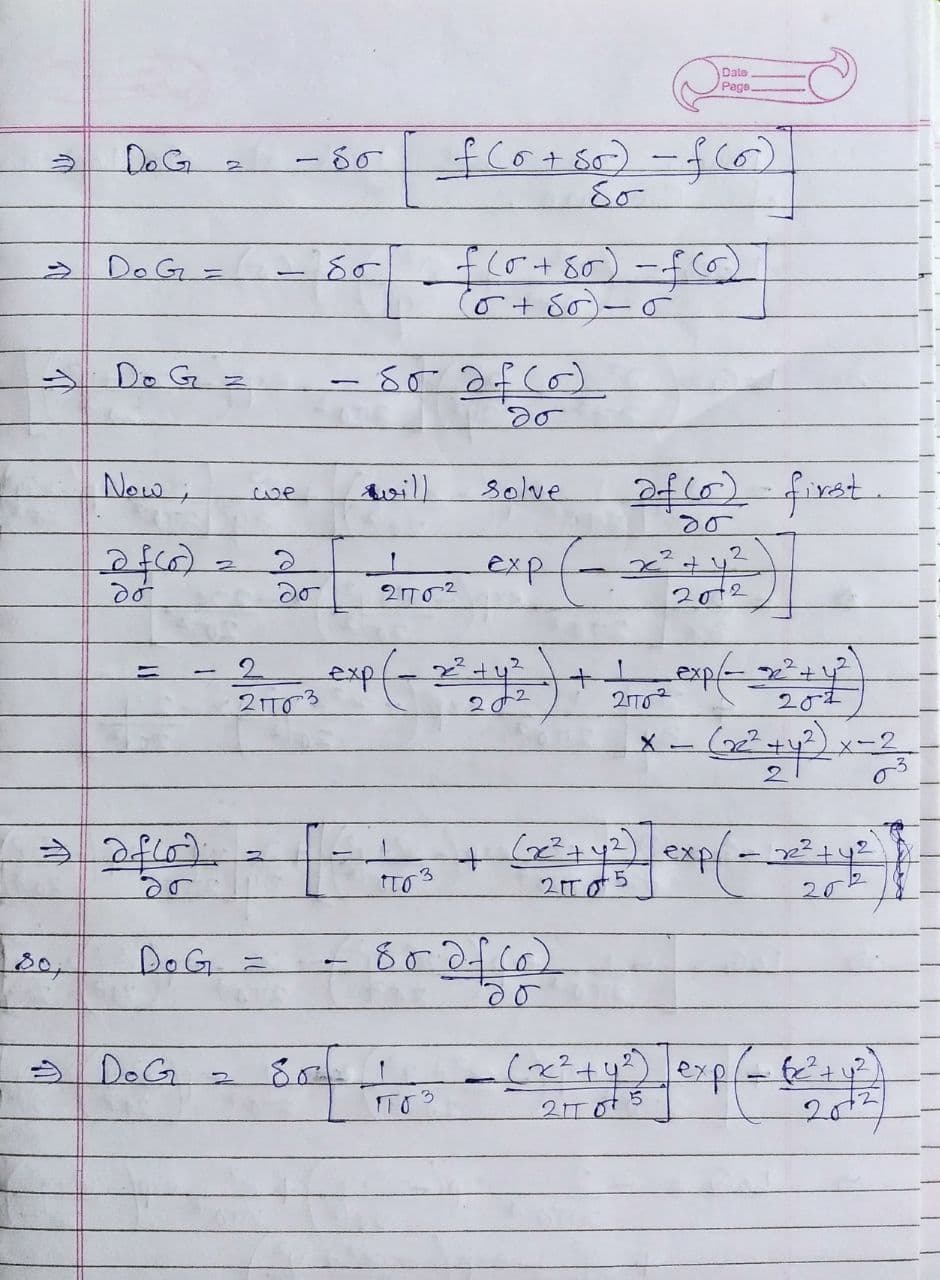 Date
Page
⇒ DoG = -δσ [ f(σ+δσ) - f(σ) / δσ ]
⇒ DoG = -δσ [ f(σ+δσ) - f(σ) / (σ+δσ) - σ ]
⇒ DoG = -δσ ∂f(σ)/∂σ
Now, we will solve ∂f(σ)/∂σ first.
∂f(σ)/∂σ = ∂/∂σ [ 1/2πσ² exp(- x²+y²/2σ²) ]
= - 2/2πσ³ exp(- x²+y²/2σ²) + 1/2πσ² exp(- x²+y²/2σ²)
x - (x²+y²)/2 x -2/σ³
⇒ ∂f(σ)/∂σ = [ - 1/πσ³ + (x²+y²)/2πσ⁵ ] exp(- x²+y²/2σ²)
so, DoG = - δσ ∂f(σ)/∂σ
⇒ DoG = δσ [ 1/πσ³ - (x²+y²)/2πσ⁵ ] exp(- (x²+y²)/2σ²)